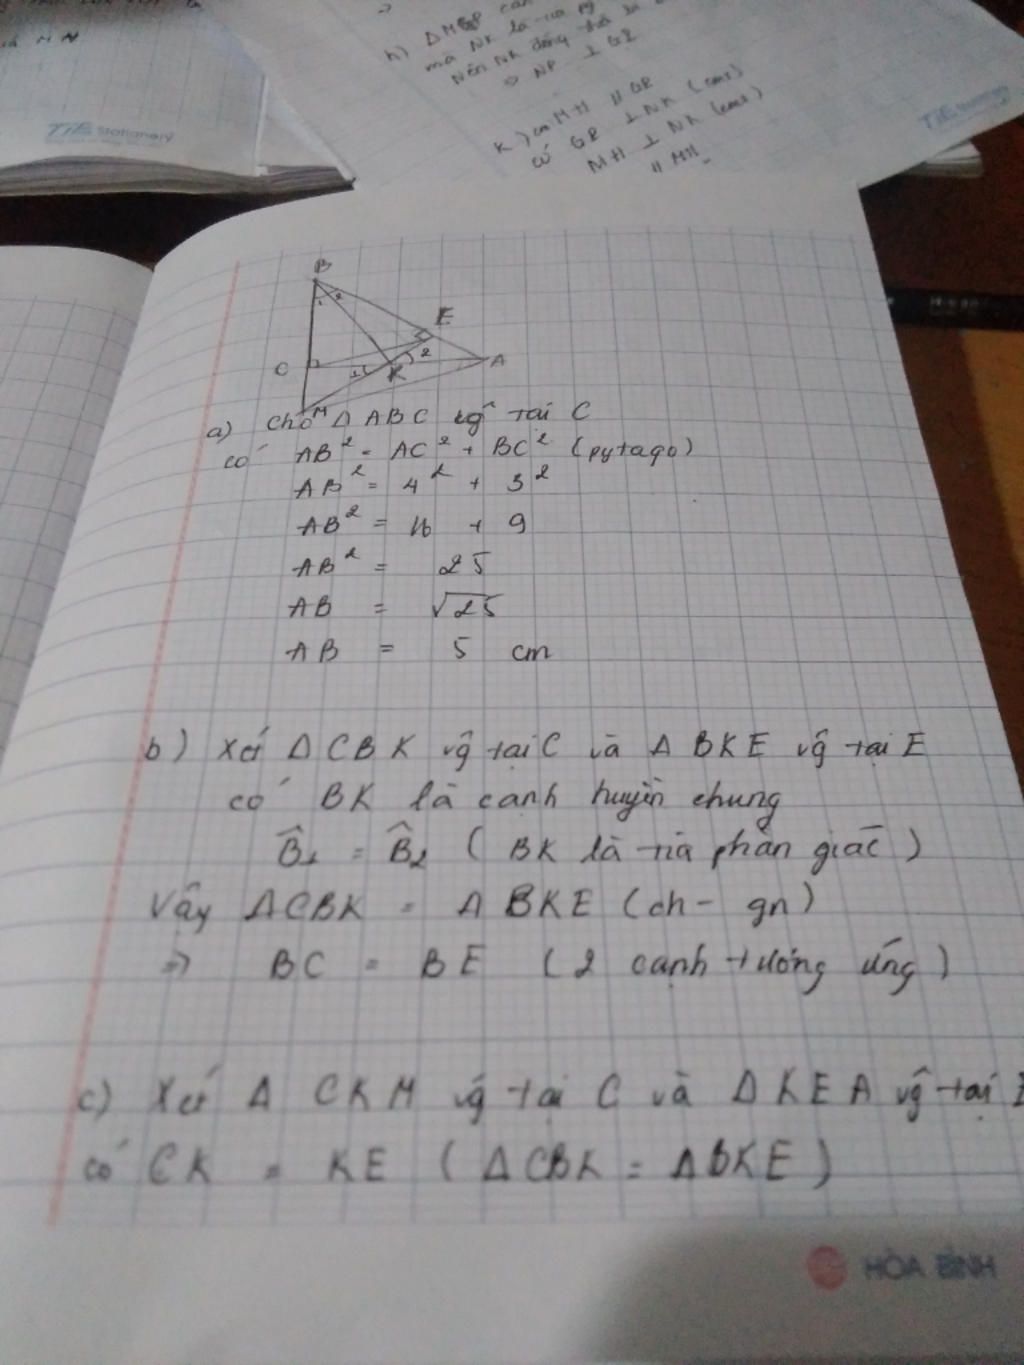 M N
TiE Stationery
h) Δ MGP cân
mà NK là tia
Nên NK đồng thời là
=> NP ⊥ GP
K) MH // GP
có GP ⊥ NK (cmt)
MH ⊥ NK (cmt)
// MH
TiE
B
1 2
E
C
1 K 2 A
M
a) Cho Δ ABC vg tại C
có AB² = AC² + BC² (pytago)
AB² = 4² + 3²
AB² = 16 + 9
AB² = 25
AB = √25
AB = 5 cm
b) Xét Δ CBK vg tại C và Δ BKE vg tại E
có BK là cạnh huyền chung
B̂1 = B̂2 ( BK là tia phân giác )
Vậy ΔCBK = Δ BKE (ch - gn)
=> BC = BE ( 2 cạnh tương ứng )
c) Xét Δ CKM vg tại C và Δ KEA vg tại E
có CK = KE ( ΔCBK = ΔBKE )
HÒA BÌNH